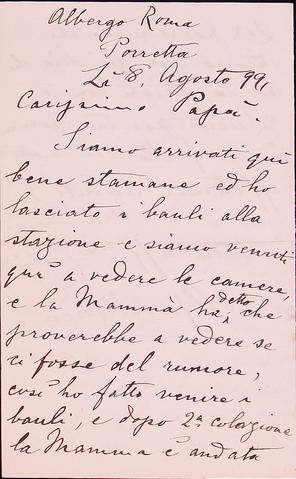 Albergo Roma
Porretta
Lì 8, Agosto 99,
Carissimo Papà.
Siamo arrivati quì
bene stamane ed ho
lasciato i bauli alla
stazione e siamo venuti
quì a vedere le camere,
e la Mammà ha detto che
proverebbe a vedere se
ci fosse del rumore,
così ho fatto venire i
bauli, e dopo 2ª colazione
la Mamma è andata